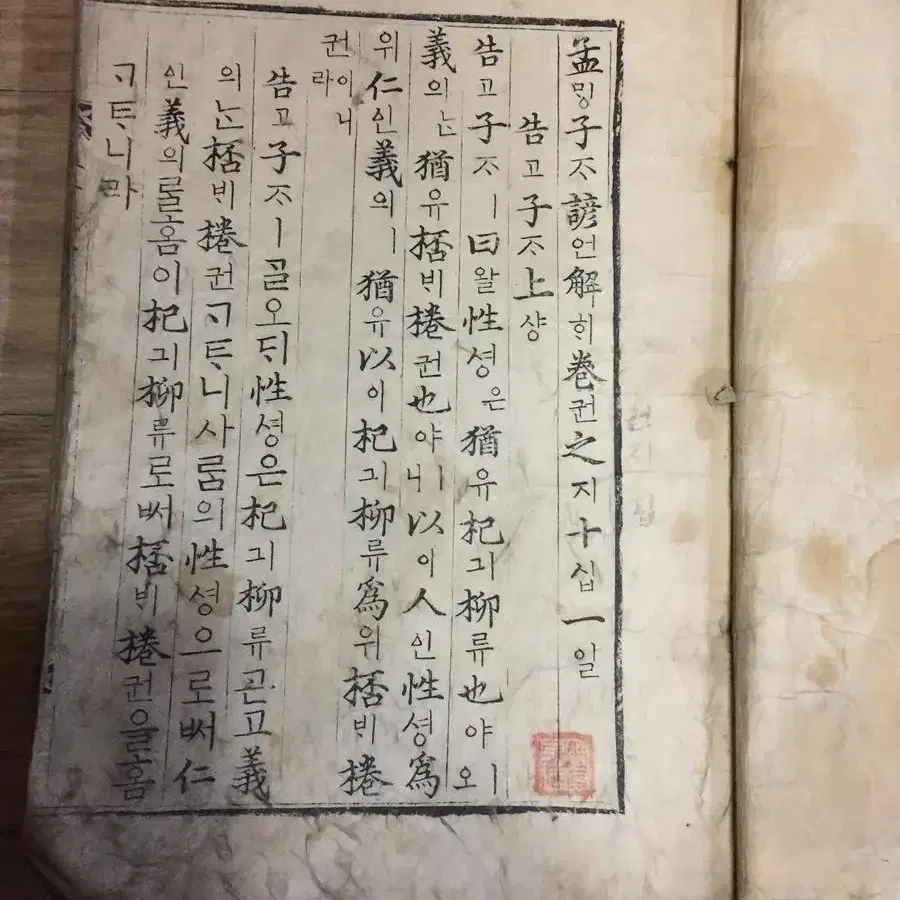 孟ᄆᆡᆼ子ᄌᆞ諺언解ᄒᆡ卷권之지十십一일
告고子ᄌᆞ上샹
告고子ᄌᆞㅣ曰왈性셩은猶유杞긔柳류也야ㅣ오
義의ᄂᆞᆫ猶유桮ᄇᆡ棬권也야ㅣ니以이人인性셩爲
위仁인義의ㅣ猶유以이杞긔柳류爲위桮ᄇᆡ棬
권이니라
告고子ᄌᆞㅣᄀᆞᆯ오ᄃᆡ性셩은杞긔柳류ᄀᆞᆮ고義
의ᄂᆞᆫ桮ᄇᆡ棬권ᄀᆞᄐᆞ니사ᄅᆞᆷ의性셩으로ᄡᅥ仁
인義의ᄅᆞᆯᄒᆞᆷ이杞긔柳류로ᄡᅥ桮ᄇᆡ棬권을ᄒᆞᆷ
ᄀᆞᄐᆞ니라